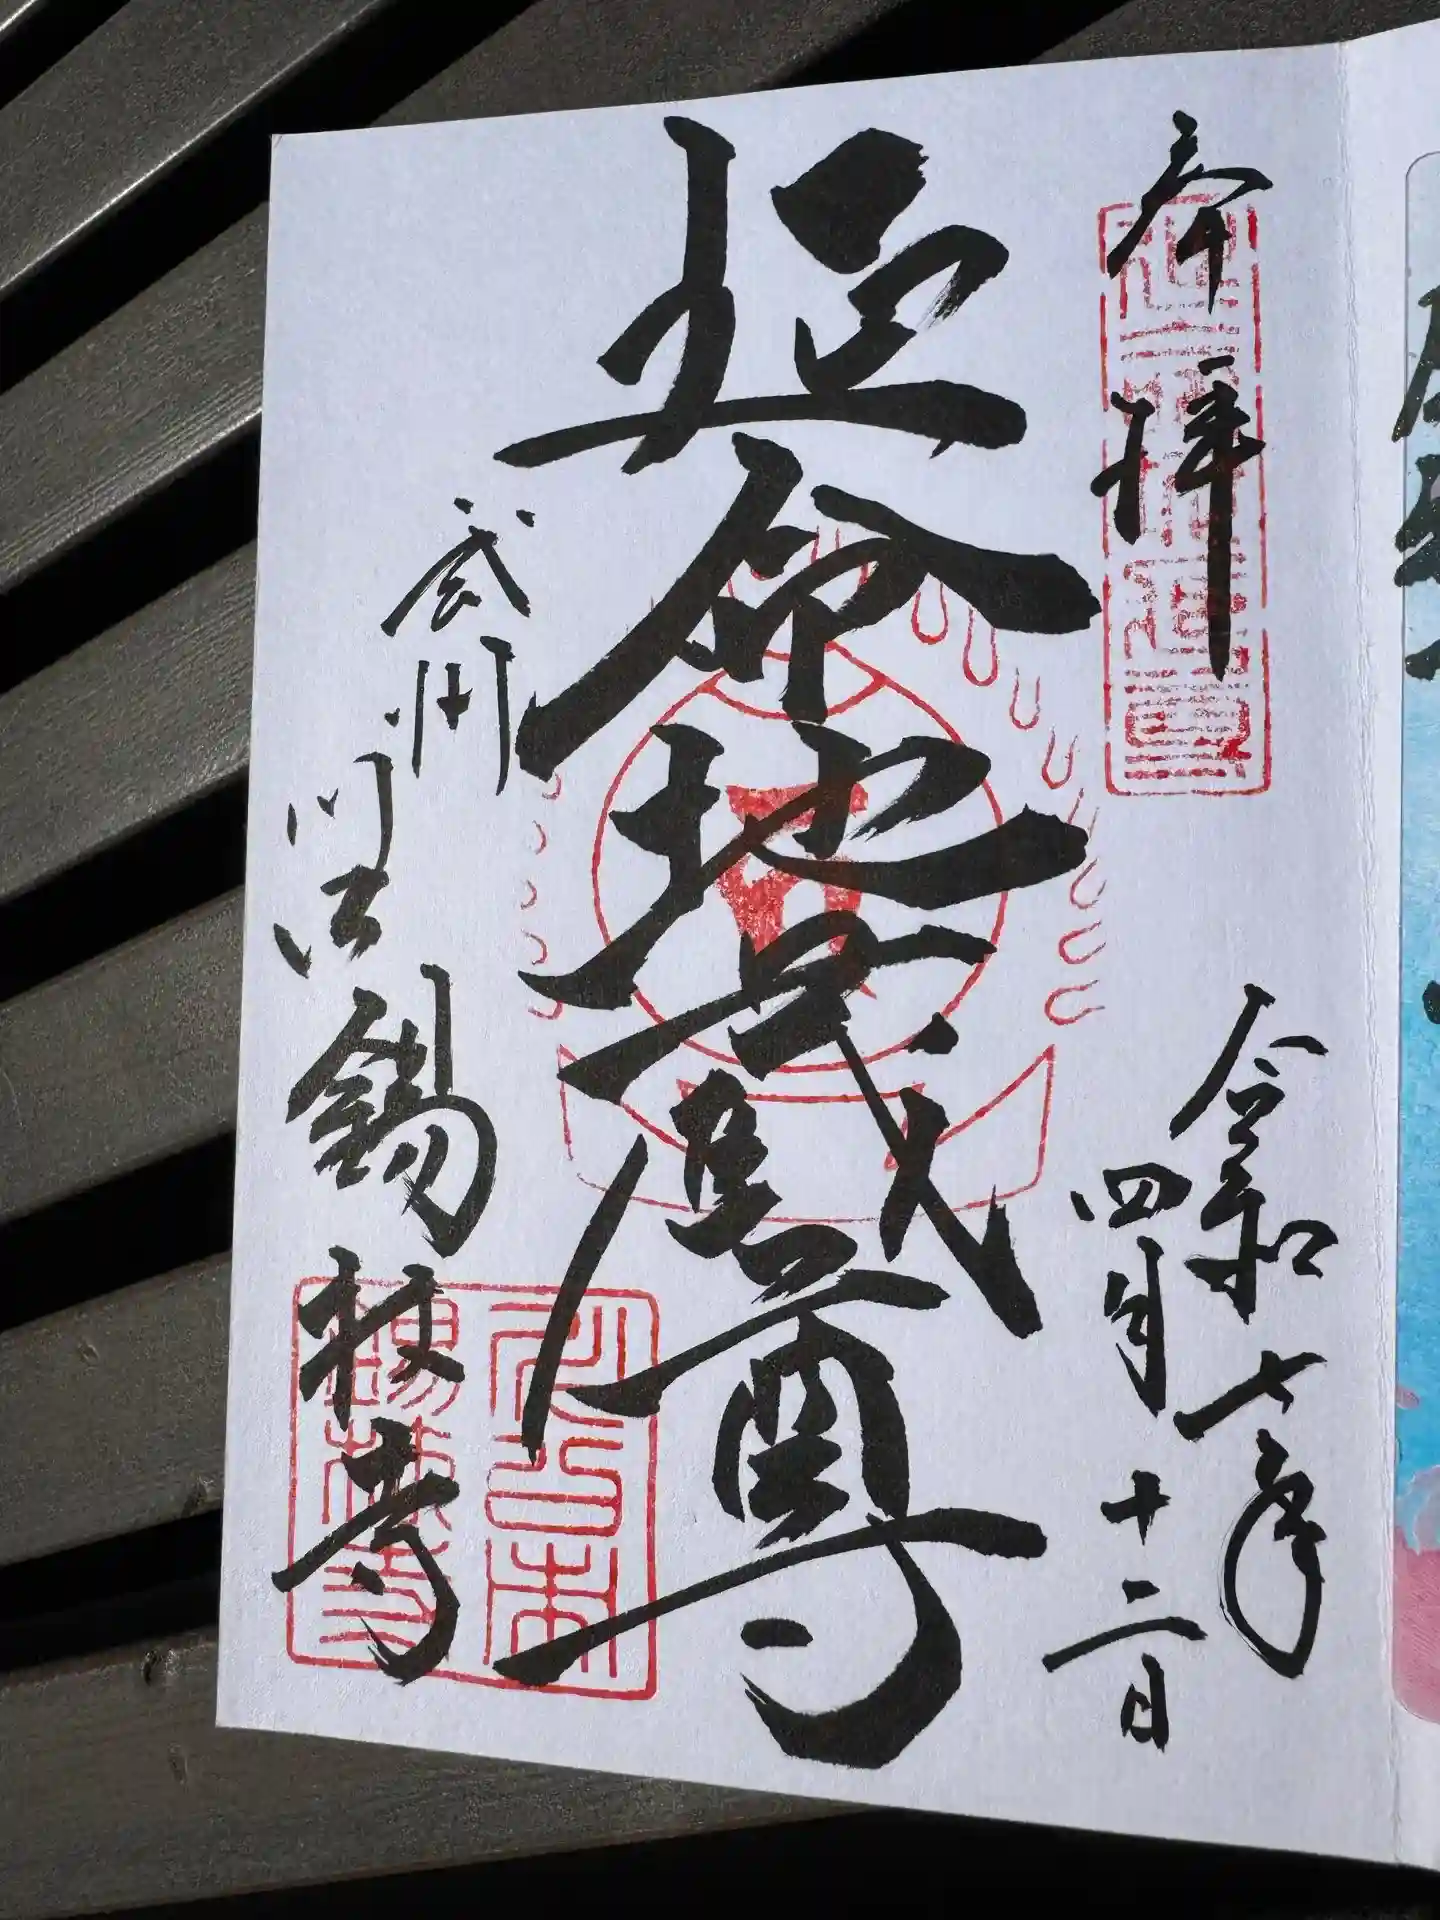 奉拝
令和七年
四月十二日
延命地蔵尊
武州
川口
錫杖寺